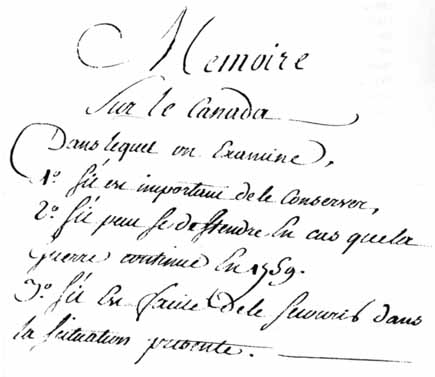 Memoire
Sur le Canada
Dans lequel on Examine,
1º. S'il est important de le Conserver,
2º. S'il peut se deffendre En cas que la
Guerre continue En 1759.
3º. S'il Est facile de le secourir dans
la situation presente.